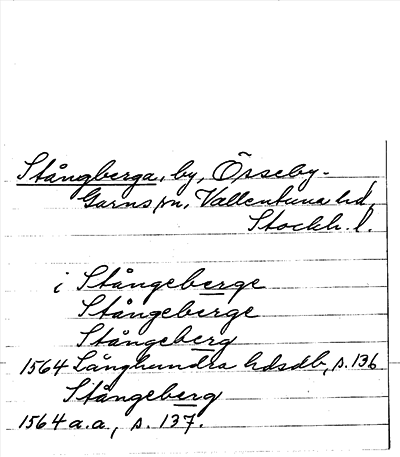 Stångberga, by, Össeby-
Garns sn, Vallentuna hd,
Stockh. l.
i Stångeberge
Stångeberge
Stångeberg
1564 Långhundra hdsdb, s. 136
Stångeberg
1564 a.a., s. 137.